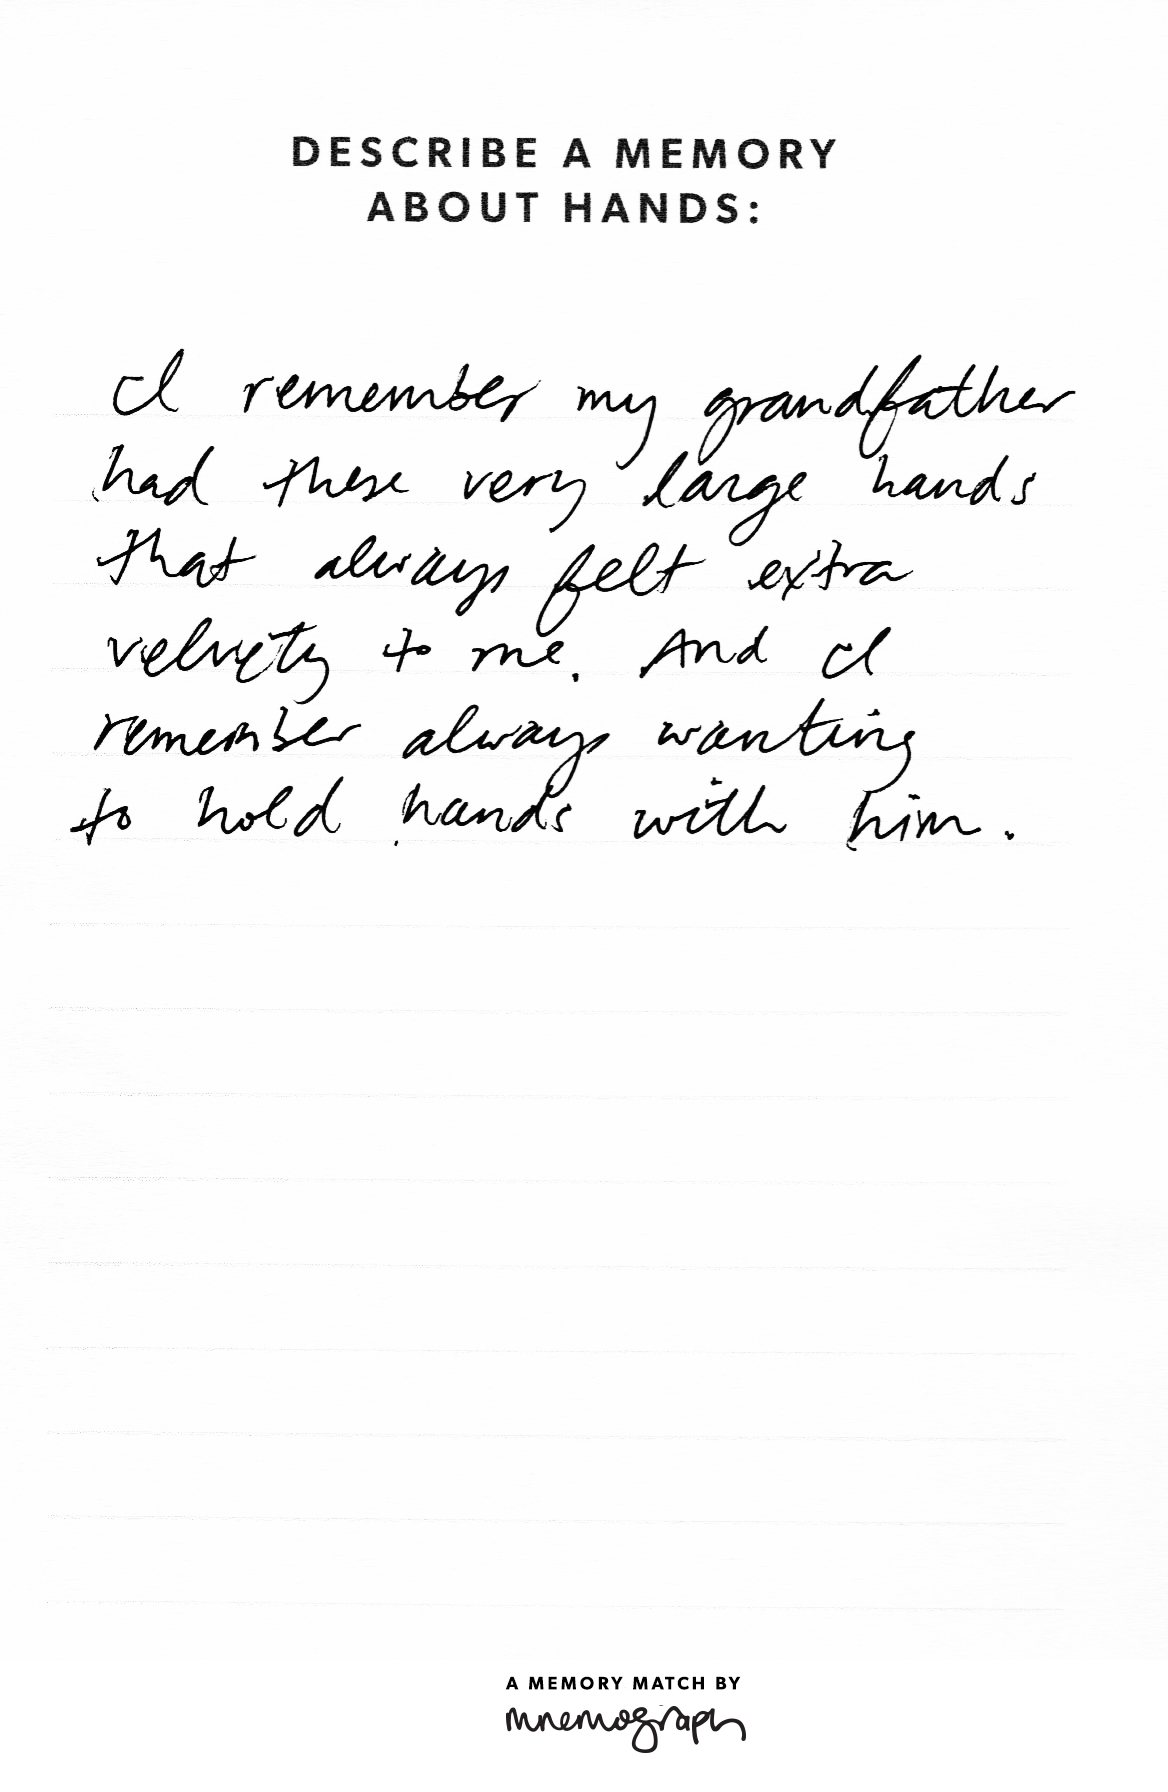 DESCRIBE A MEMORY
ABOUT HANDS:
I remember my grandfather
had these very large hands
that always felt extra
velvety to me. And I
remember always wanting
to hold hands with him.
A MEMORY MATCH BY
mnemograph